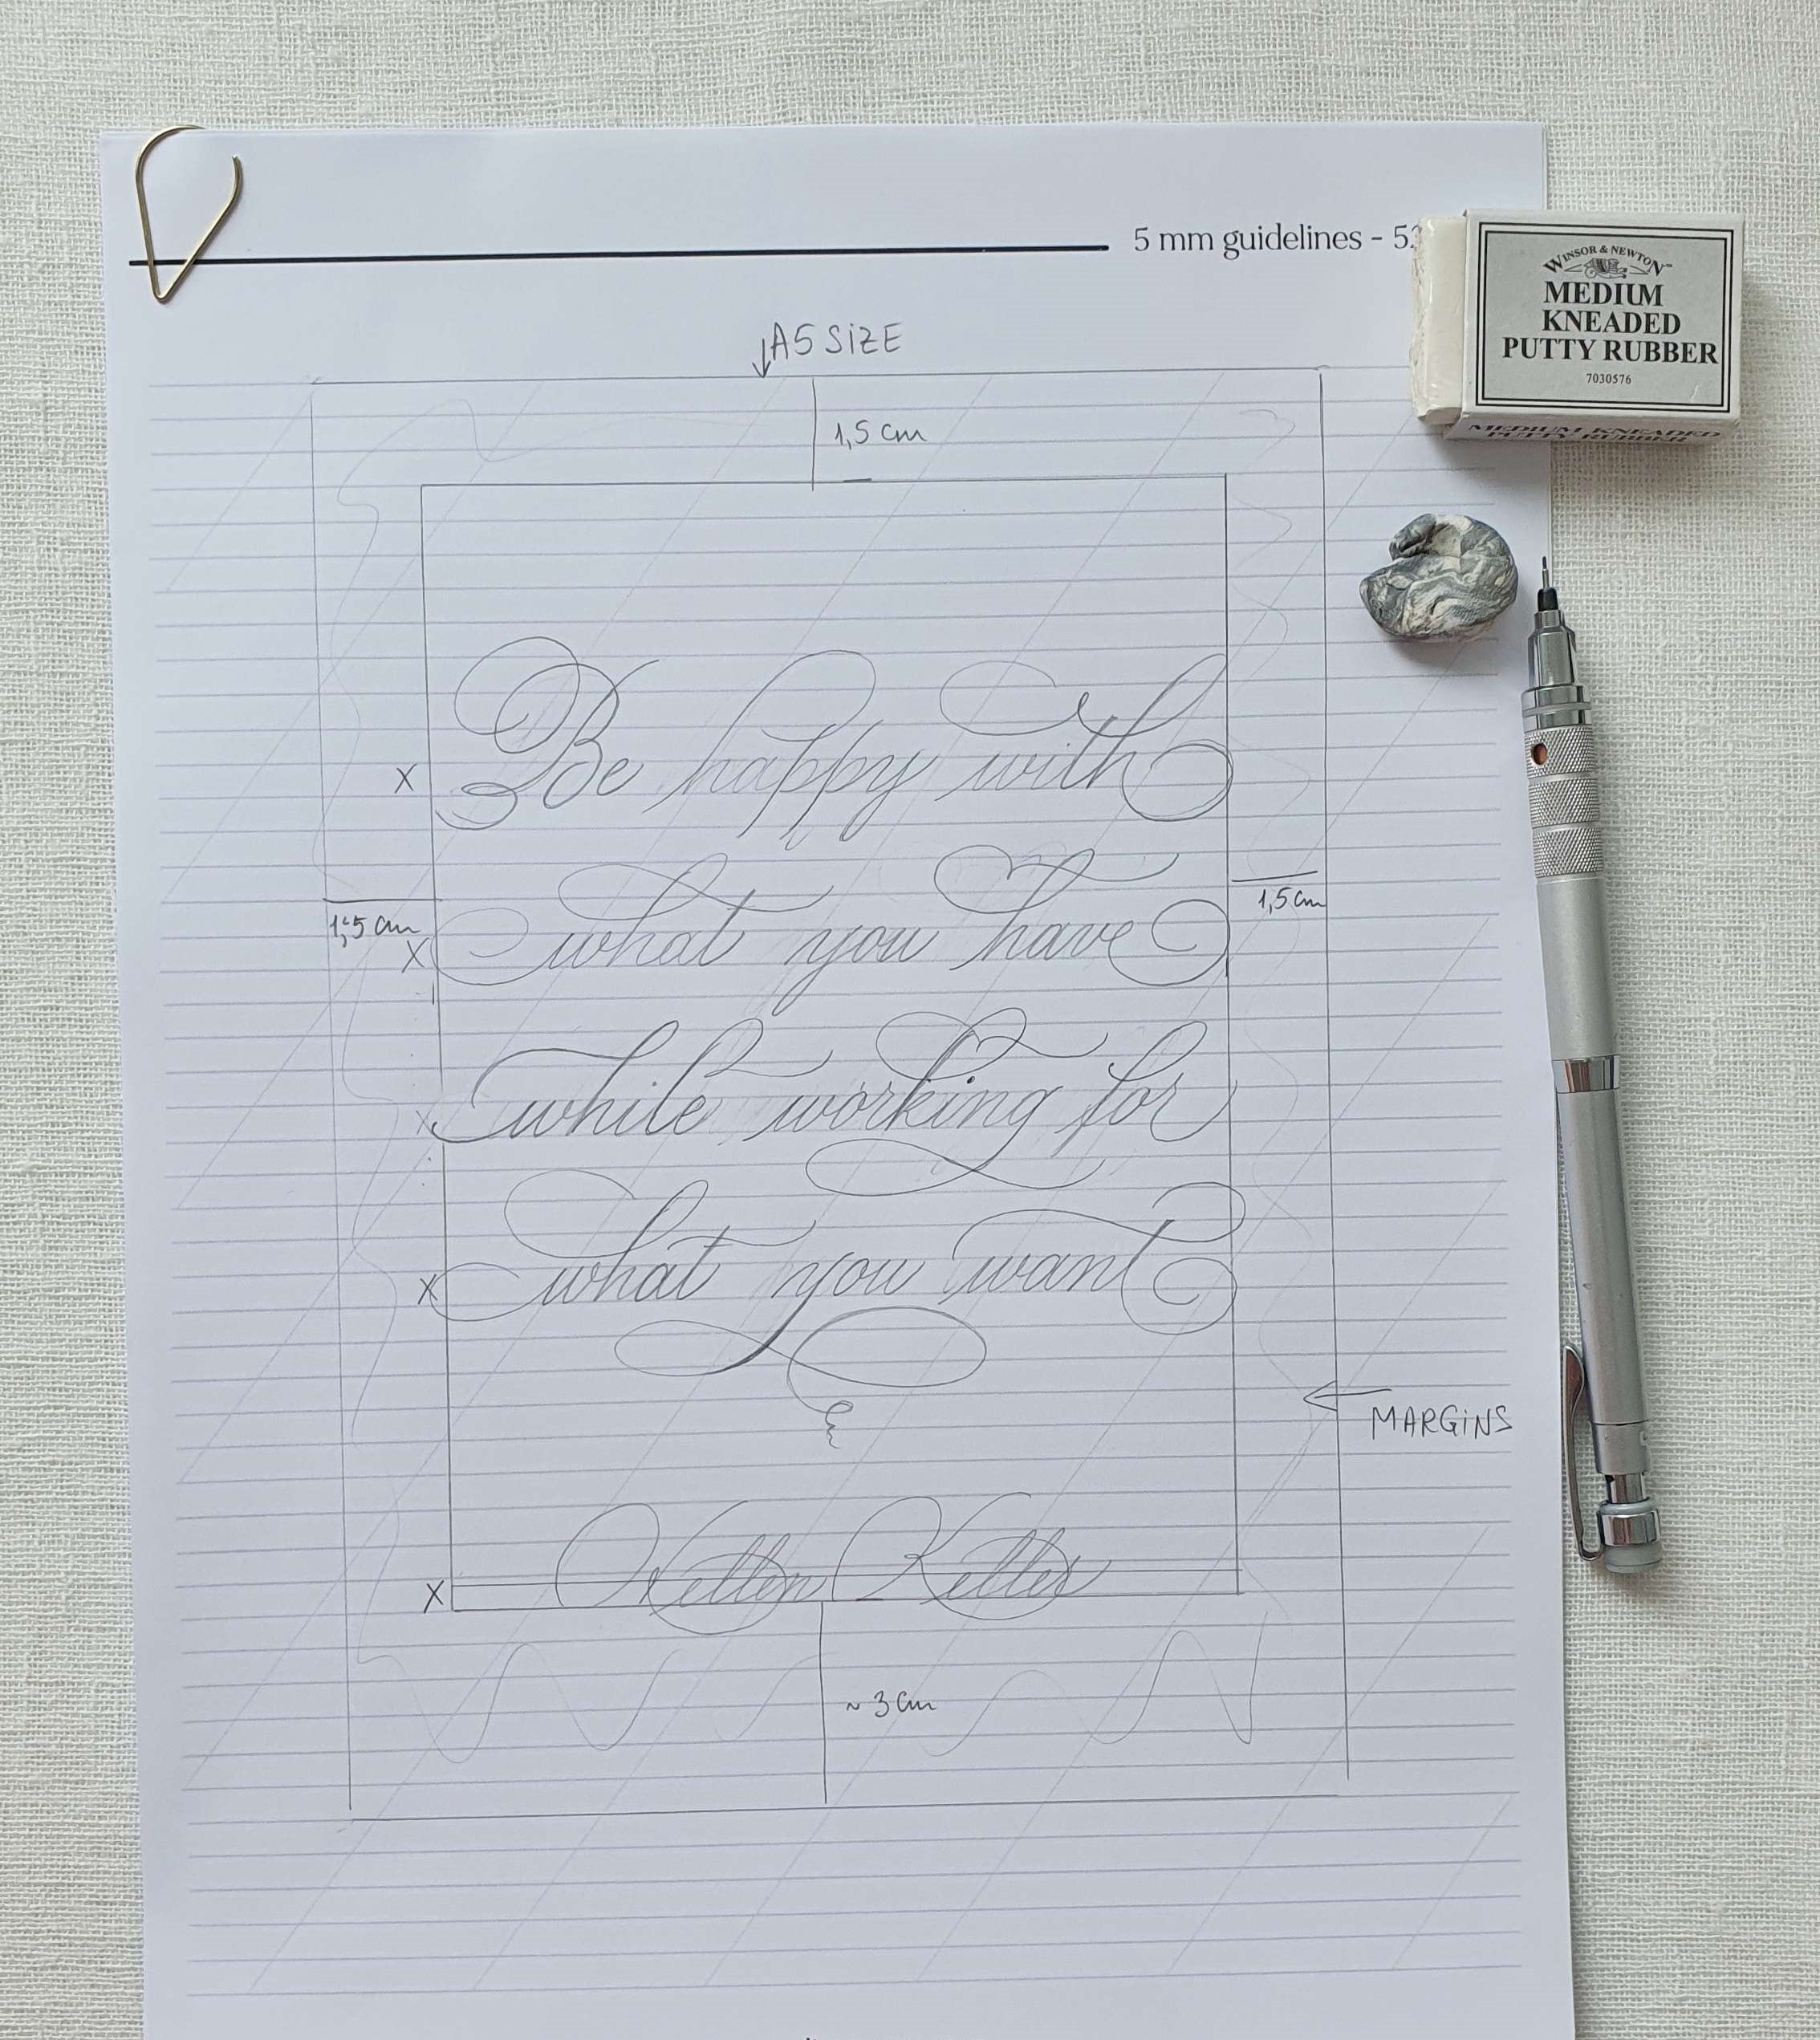 5 mm guidelines - 5
WINSOR & NEWTON™
MEDIUM
KNEADED
PUTTY RUBBER
7030576
MEDIUM KNEADED
PUTTY RUBBER
A5 SiZE
1,5 cm
x
Be happy with
1,5 cm
1,5 cm
x
what you have
x
while working for
x
what you want
MARGiNS
x
Hellen Keller
~ 3 cm